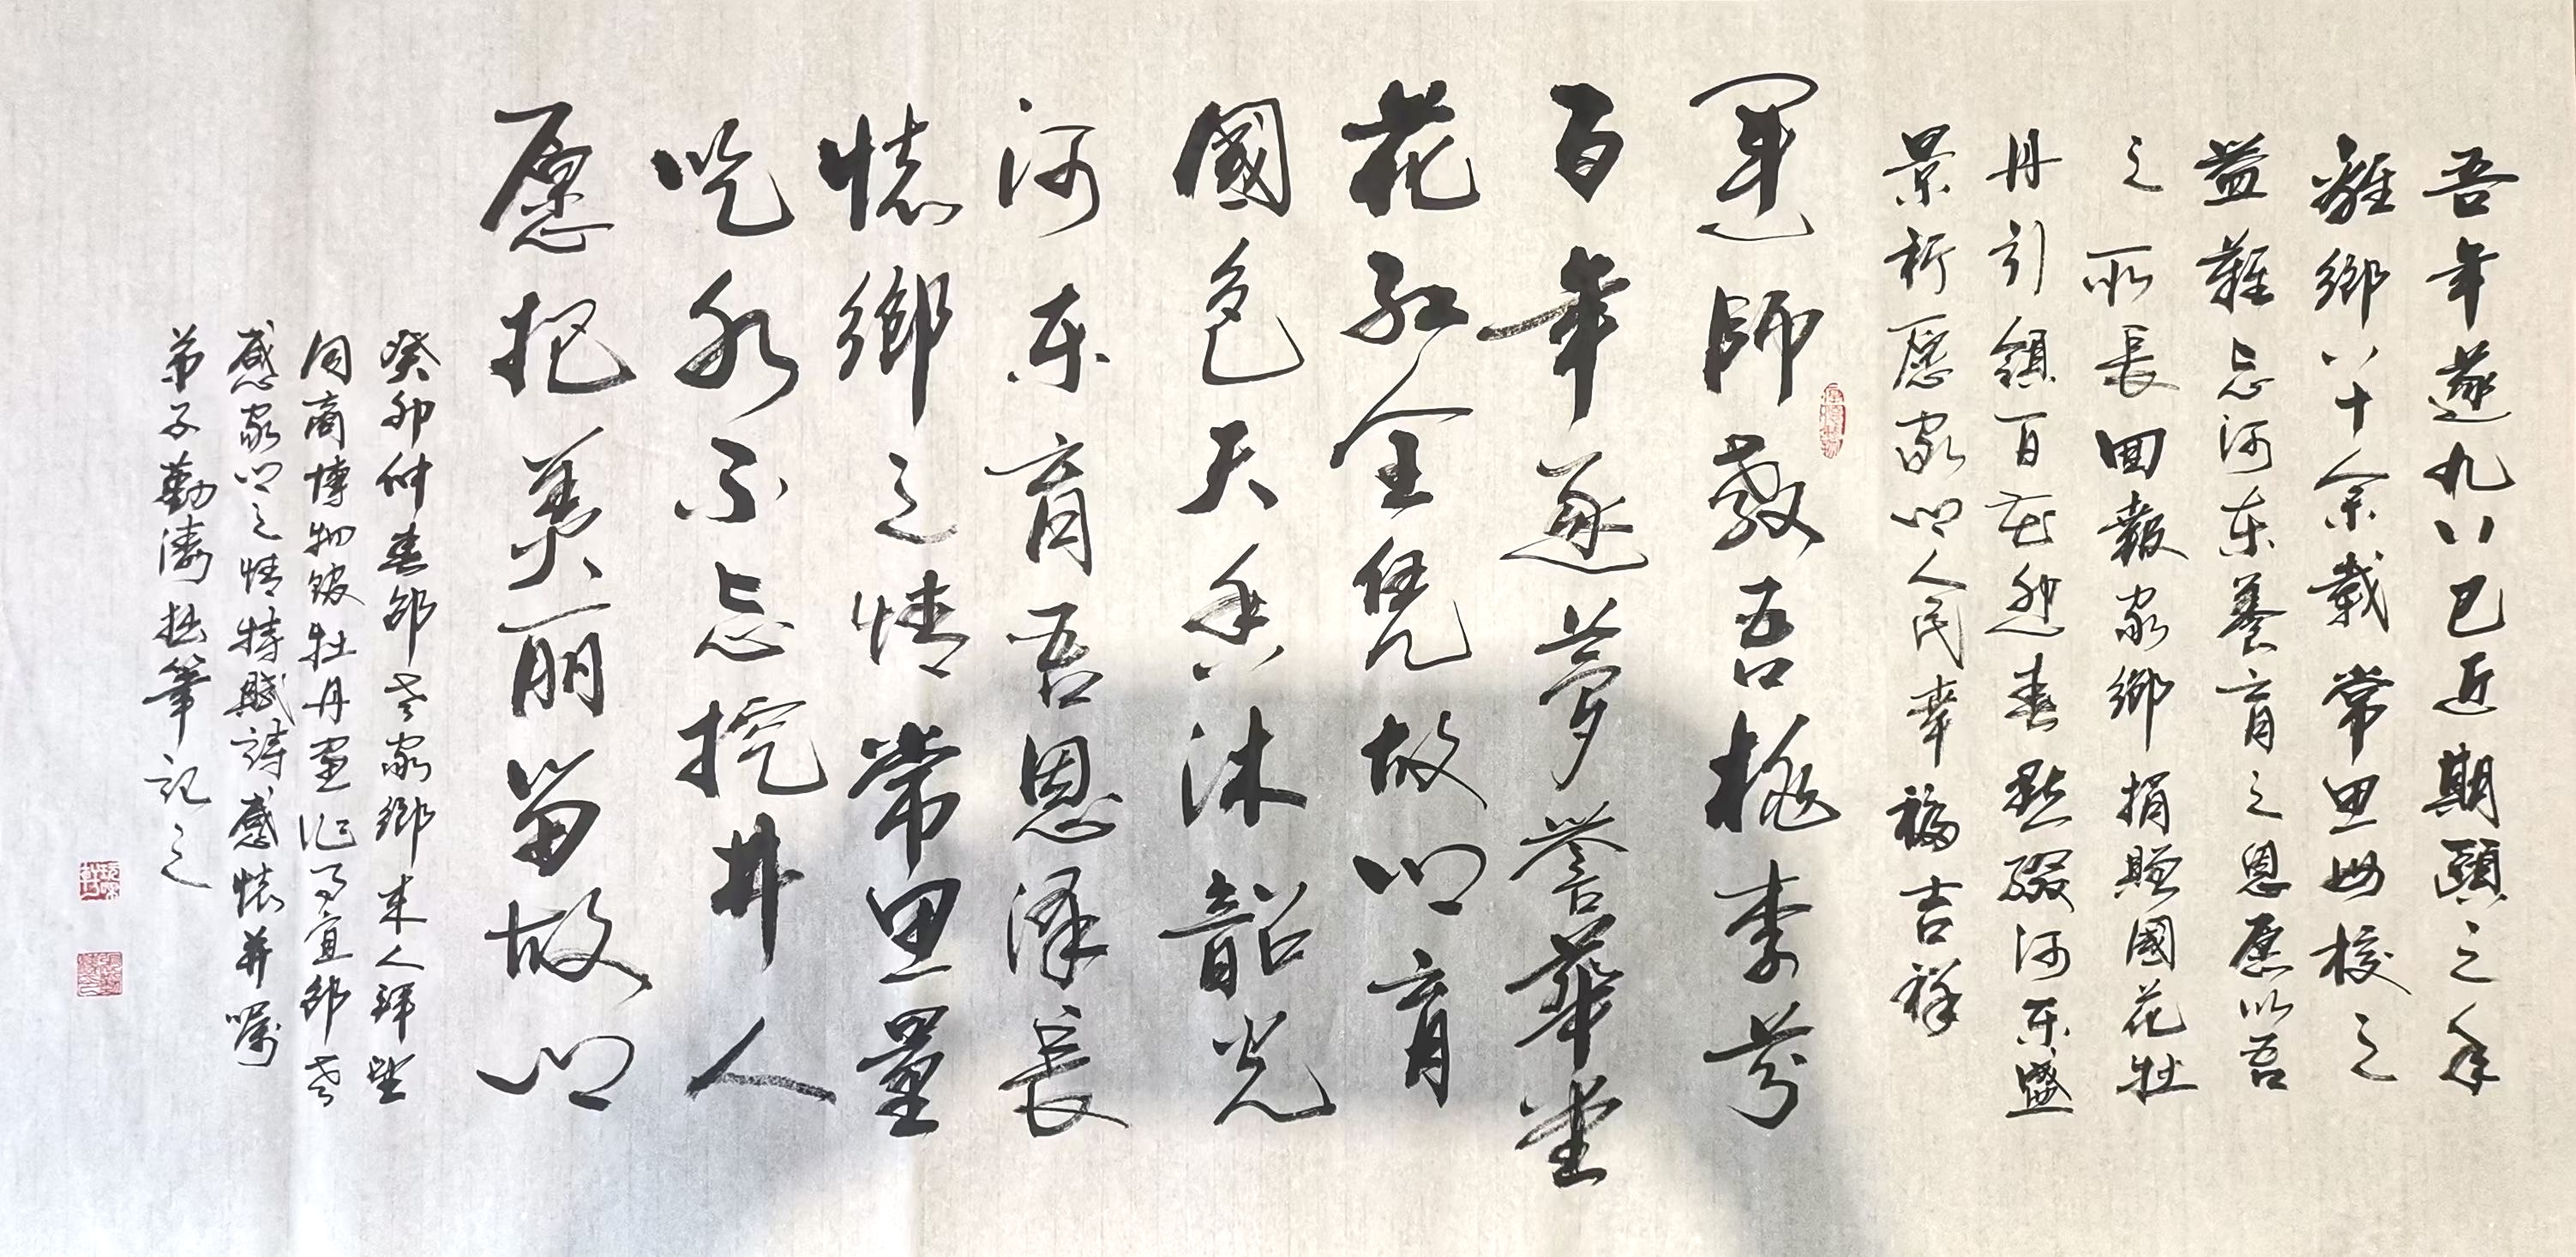 吾年遂九八已近期頤之年
離鄉八十余載常思母校之
益難忘河东養育之恩愿以吾
之所長回報家鄉捐贈國花牡
丹引領百花迎春點綴河东盛
景祈愿家山人民幸福吉祥
運師教吾桃李芬
百年逐夢譽華堂
花紅全凭故山育
國色天香沐韶光
河东育吾恩澤長
懷鄉之情常思量
吃水不忘挖井人
愿把美丽留故山
癸卯仲春郃老家鄉来人拜望
同商博物館牡丹畫作事宜郃老
感家山之情特賦詩感懷并囑
弟子勤濤拙筆記之